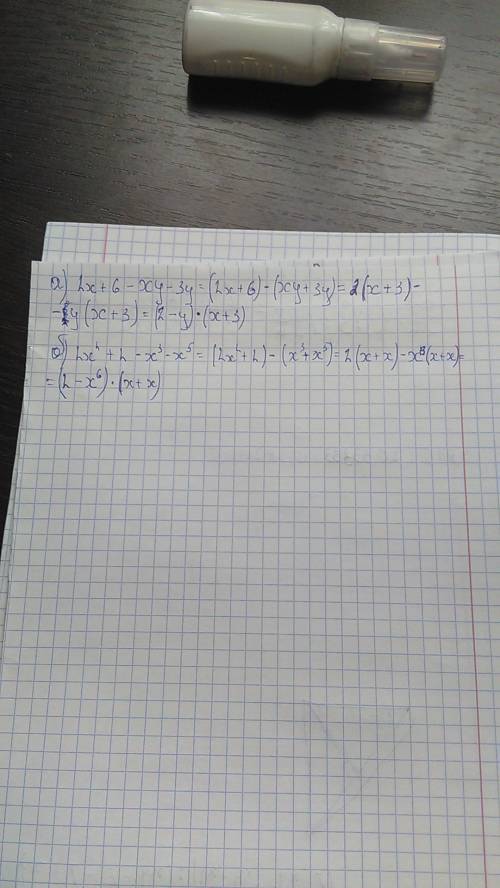 а) 2x+6-xy-3y=(2x+6)-(xy+3y)=2(x+3)-
-y(x+3)=(2-y)·(x+3)
б) 2x²+2-x³-x⁵=(2x²+2)-(x³+x⁵)=2(x+x)-x³(x+x)=
=(2-x⁶)·(x+x)